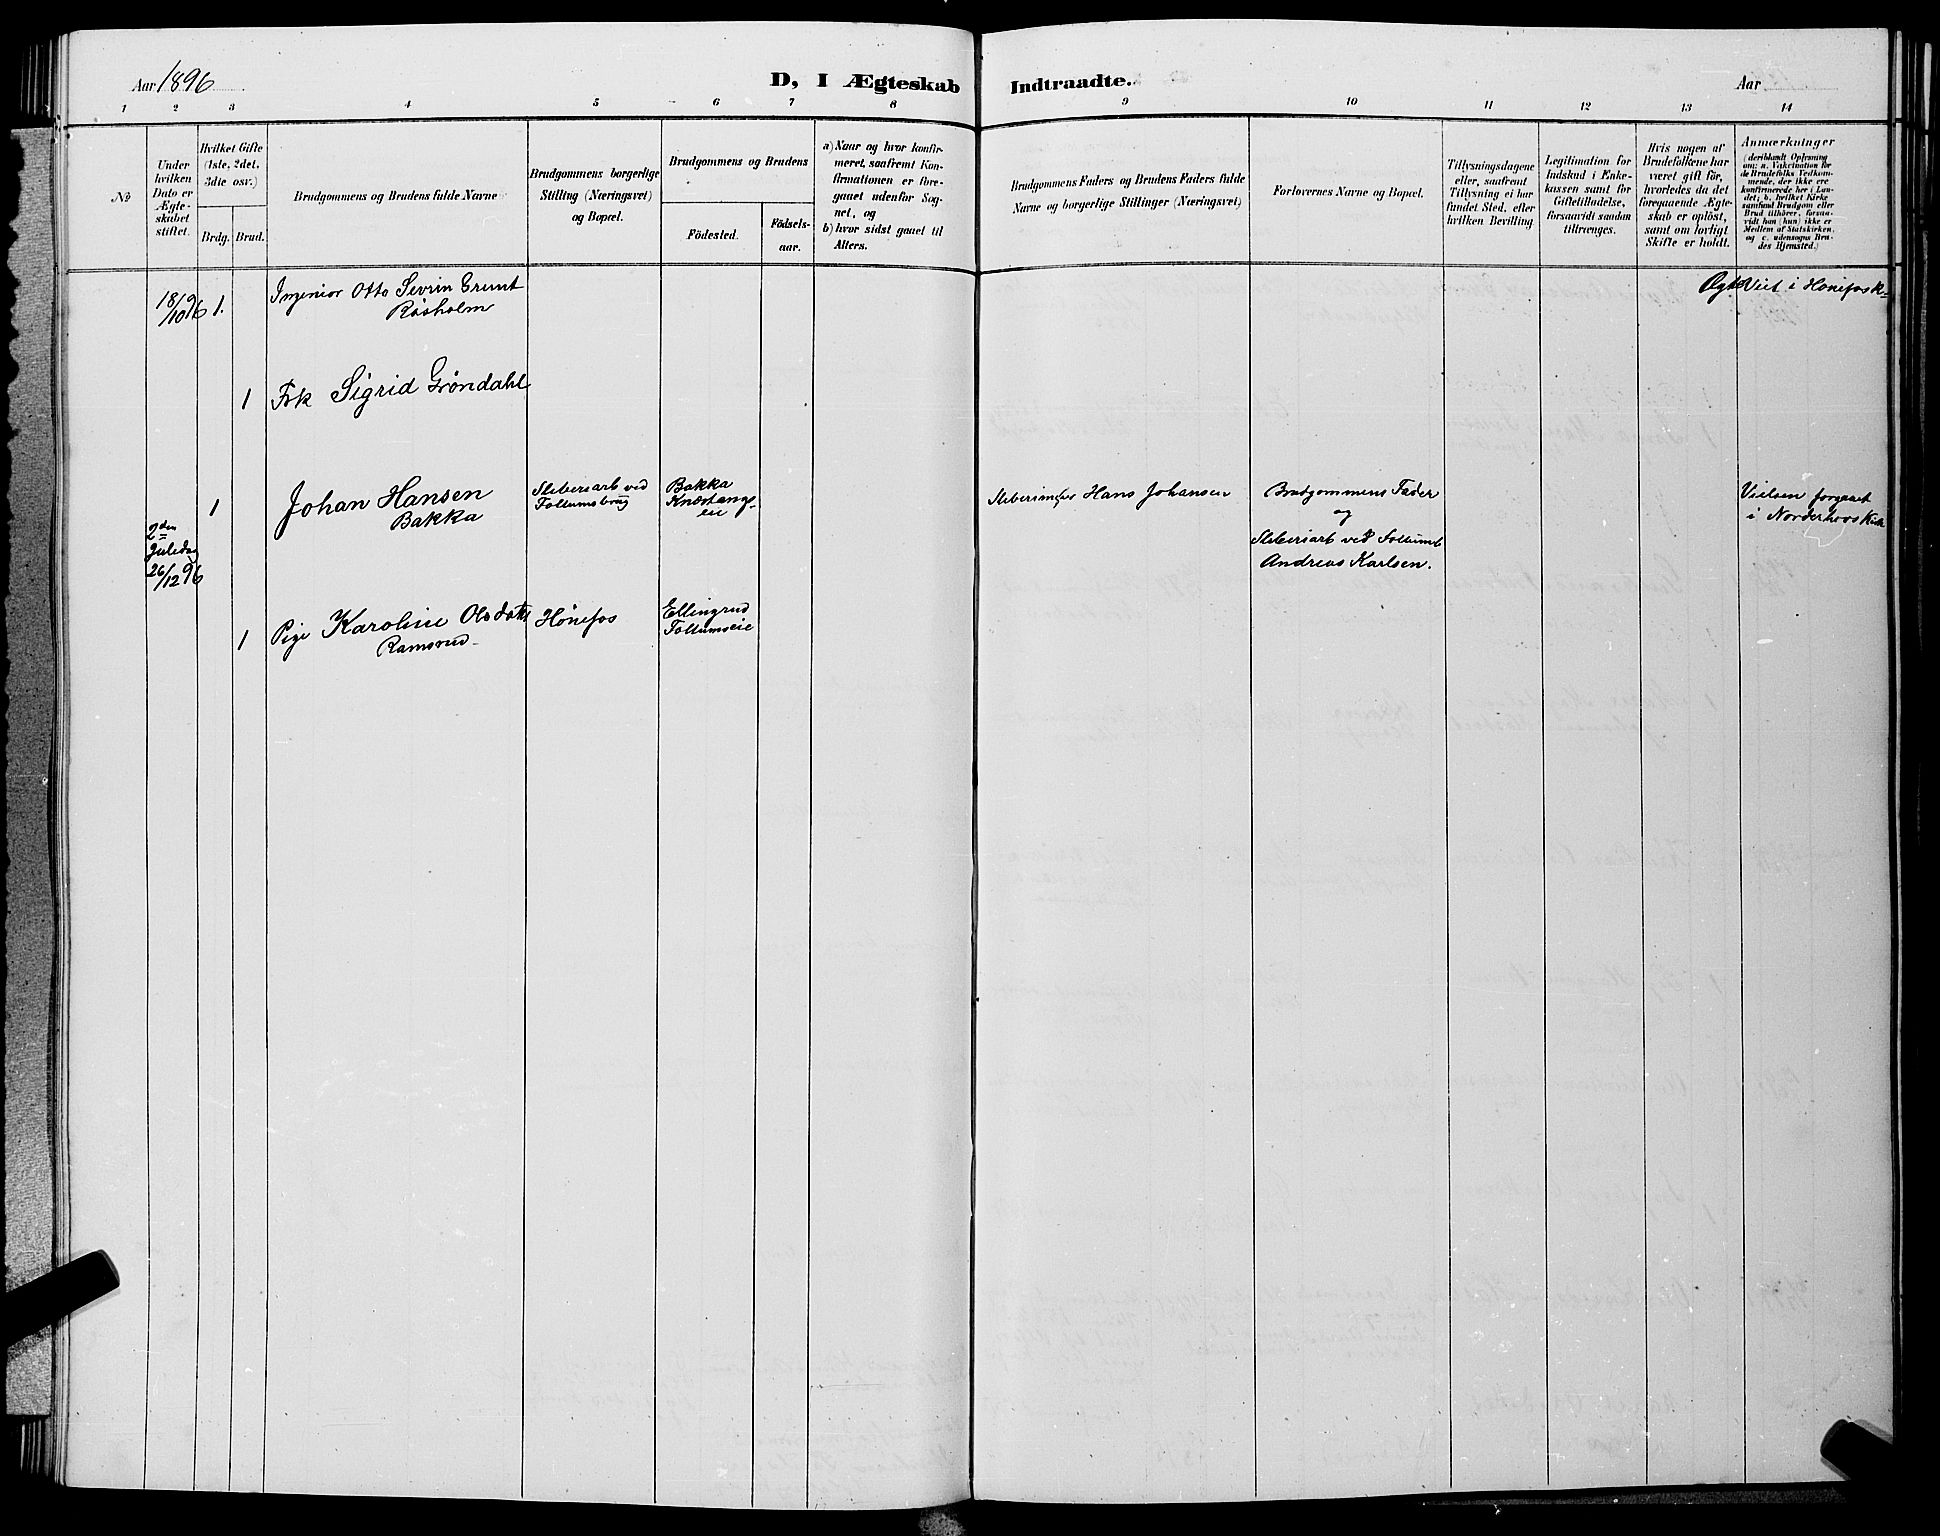 Aar 1896
D, I Ægteskab Indtraadte.
Aar
1 2 3 4 5 6 7 8 9 10 11 12 13 14
No
Under
hvilken
Dato er
Ægte-
skabet
stiftet.
Hvilket Gifte
(1ste, 2det,
3die osv.)
Brdg. Brud.
Brudgommens og Brudens fulde Navne
Brudgommens borgerlige
Stilling (Næringsvei)
og Bopæl.
Brudgommens og Brudens
Födested.
Födsels-
aar.
a) Naar og hvor konfir-
meret, saafremt Kon-
firmationen er fore-
gaaet udenfor Sog-
net, og
b) hvor sidst gaaet til
Alters.
Brudgommens Faders og Brudens Faders fulde
Navne og borgerlige Stillinger (Næringsvei)
Forlovernes Navne og Bopæl.
Tillysningsdagene
eller, saafremt
Tillysning ei har
fundet Sted, efter
hvilken Bevilling
Legitimation for
Indskud i Enke-
kassen samt for
Giftetilladelse,
forsaavidt saadan
tiltrænges.
Hvis nogen af
Brudefolkene har
været gift för,
hvorledes da det
foregaaende Ægte-
skab er oplöst,
samt om lovligt
Skifte er holdt.
Anmærkninger
(deriblandt Oplysning
om: a. Vakcination for
de Brudefolks Vedkom-
mende, der ikke ere
konfirmerede her i Lan-
det; b. hvilket Kirke
samfund Brudgom eller
Brud tilhörer, forsaa-
vidt han (hun) ikke er
Medlem af Statskirken.
og c. udensogns Bru-
des Hjemsted.)
18/10 96 1. Ingeniør Otto Sevrin Grunt
Røsholm
Viet i Hønefos K
1 Frk Sigrid Grøndahl
2den
Juledag
26/12 96
1 Johan Hansen
Bakka
Sliberiarb ved
Follumsbrug
Bakka
Knæstang-
eie
Hans Johansen
Brudgommens Fader
og
Sliberiarb ved Follumb
Andreas Karlsen.
Vielsen forgaaet
i Norderhovs Kirk
1 Pige Karoline Olsdatt
Ramsrud
Hønefos
Ellingrud
Follumseie